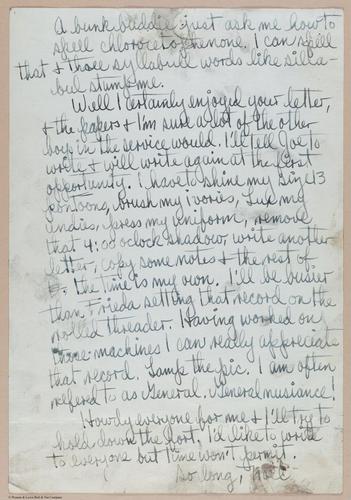 A bunk buddie just ask me how to
spell chloroacetophenone. I can spell
that & those syllabull words like silla-
bul stump me.
Well I certainly enjoyed your letter,
& the papers & I'm sure a lot of the other
boys in the service would. I'll tell Joe to
write & will write again at the first
opportunity. I have to shine my size 13
pontoons, brush my ivories, Lux my
undies, press my uniform, remove
that 4:00 oclock shadow, write another
letter, copy some notes & the rest of
the time is my own. I'll be busier
than Frieda setting that record on the
rolled threader. Having worked on
those machines I can really appreciate
that record. Lamp the pic. I am often
refered to as General. General nusiance!
Howdy everyone for me & I'll try to
hold down the fort. I'd like to write
to everyone but time won't permit.
So long,